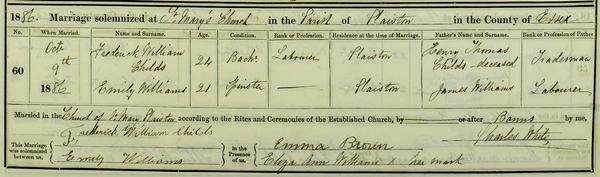 1886. Marriage solemnized at St Mary's Church in the Parish of Plaistow in the County of Essex
No. When Married. Name and Surname. Age. Condition. Rank or Profession. Residence at the time of Marriage. Father's Name and Surname. Rank or Profession of Father
60 Octr 9th 1886 Frederick William Childs 24 Bachr Labourer Plaistow Henry Thomas Childs - deceased Tradesman
Emily Williams 21 Spinster — Plaistow James Williams Labourer
Married in the Church of St Mary Plaistow according to the Rites and Ceremonies of the Established Church, by — or after Banns by me,
This Marriage was solemnized between us, Frederick William Childs Emily Williams in the Presence of us, Emma Brown Eliza Ann Williams X her mark Charles White